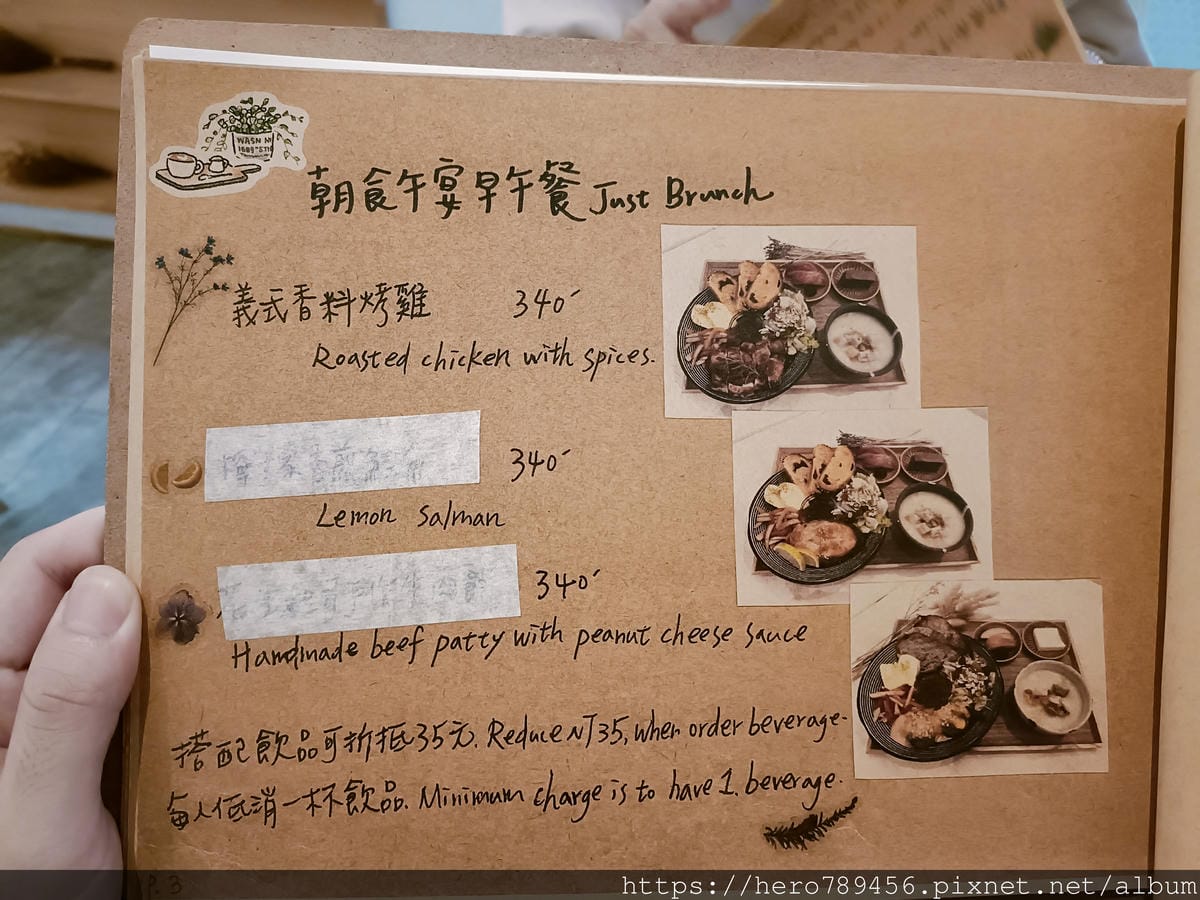 WASN
朝食午宴早午餐 Just Brunch
義式香料烤雞 340
Roasted chicken with spices.
340
Lemon Salman
340
Handmade beef patty with peanut cheese sauce
搭配飲品可折抵35元. Reduce NT35, when order beverage.
每人低消一杯飲品. Minimum charge is to have 1. beverage.
P. 3
https://hero789456.pixnet.net/album